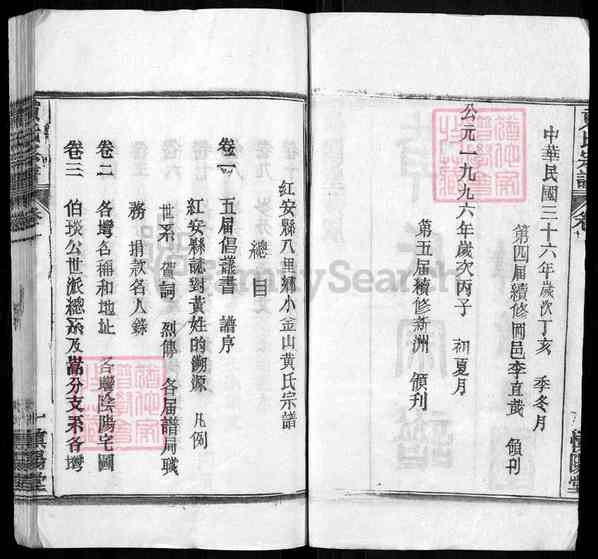 黄氏宗譜
中華民國三十六年歲次丁亥 季冬月
第四届續修岡邑李直崴 領刊
公元一九九六年歲次丙子 初夏月
第五届續修新洲 領刊
紅安縣八里鄉小金山黄氏宗譜
總目
卷一 五届倡叢書 譜序
紅安縣誌對黄姓的溯源 凡例
世系 賀詞 烈傳 各届譜局職
務 捐款名人錄
卷二 各塆名稱和地址 各塆陰陽宅圖
卷三 伯琰公世派總系及當分支系各塆
FamilySearch